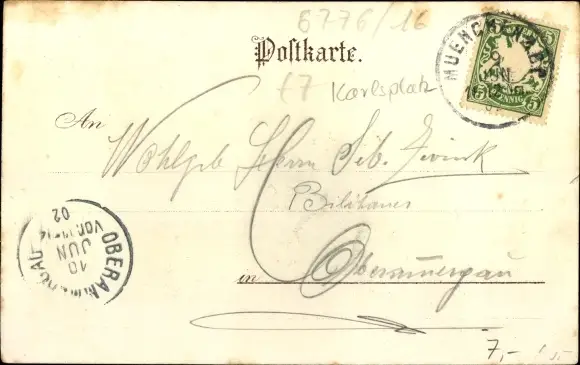 8776/16
Postkarte.
MUENCHEN
9.
JUN
5 5
PFENNIG
Karlsplatz
An
Wohlgeb Herrn Seb. Zwink
Bildhauer
in Oberammergau
OBERAMMERGAU
10
JUN
02
7,-